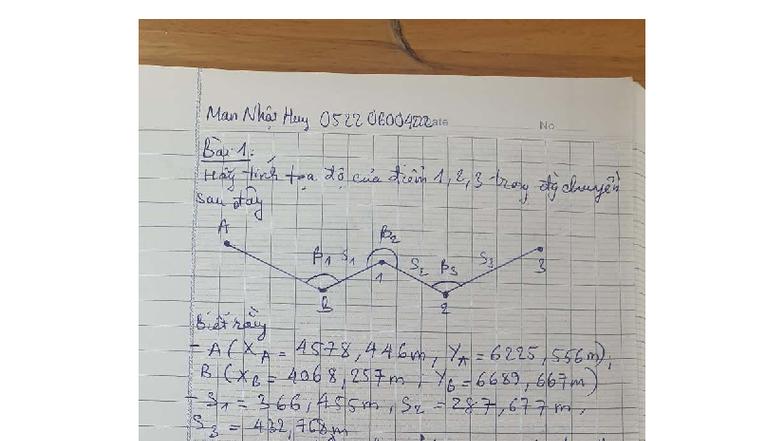 Man Nhật Huy 0522 0600422 ate No
Bài 1:
Hãy tính tọa độ của điểm 1, 2, 3 trong đg chuyền
sau đây
A
β1 S1 β2 S2 β3 S3
B 1 2 3
Biết rằng
- A (XA = 4578,446m, YA = 6225,556m),
B (XB = 4068,257m, YB = 6689,667m)
- S1 = 366,455m, S2 = 287,677m,
S3 = 432,768m